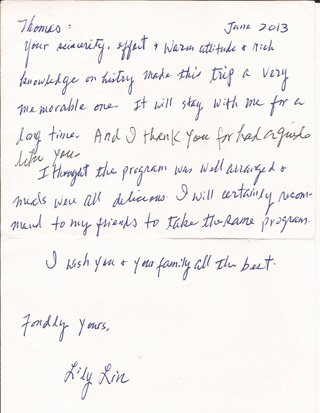 Thomas: June 2013
Your sincerity, effort & warm attitude & rich
knowledge on history made this trip a very
memorable one. It will stay with me for a
long time. And I thank you for had a guide
like you.
I thought the program was well arranged &
meals were all delicious. I will certainly recom-
mend to my friends to take the same program.
I wish you & your family all the best.
Fondly yours,
Lily Lin